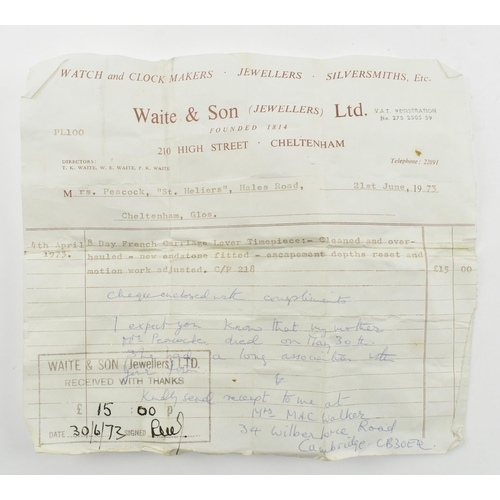 WATCH and CLOCK MAKERS · JEWELLERS · SILVERSMITHS, Etc.
Waite & Son (JEWELLERS) Ltd.
V.A.T. REGISTRATION
No. 275 2303 59
FOUNDED 1814
PL100
210 HIGH STREET · CHELTENHAM
DIRECTORS:
T. K. WAITE, W. E. WAITE, P. R. WAITE
Telephone: 22891
Mrs. Peacock, "St. Heliers", Hales Road, 21st June, 1973
Cheltenham, Glos.
4th April 8 Day French Carriage Lever Timepiece:- Cleaned and over-
1973. hauled - new endpiece fitted - escapement depths reset and
motion work adjusted. C/P 218 £15 00
Cheque enclosed with compliments
I expect you know that my mother
Mrs Peacock died on May 30th.
She had a long association with
your firm
WAITE & SON (Jewellers) LTD.
RECEIVED WITH THANKS
£ 15 00 p
DATE 30/6/73 SIGNED
Kindly send receipt to me at
Mrs MACWalker
34 Wilberforce Road
Cambridge CB30EQ